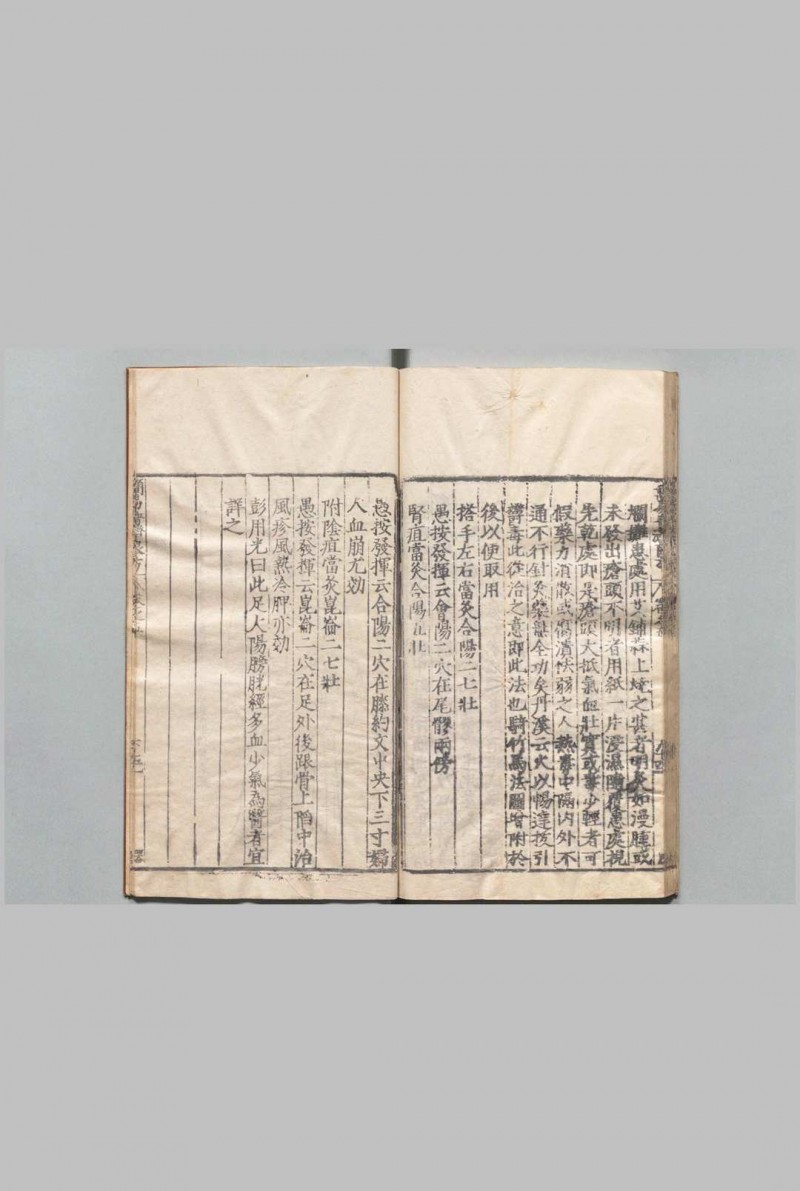 爛患處用艾鋪蒜上燒之甚者明灸如漫腫或
未發出瘡頭不明者用紙一片浸濕覆患處視
先乾處即是瘡頭大抵氣血壯實或毒少輕者可
假藥力消散或腐潰怯弱之人熱毒中隔內外不
通不行針灸藥無全功矣丹溪云火以暢達拔引
鬱毒此從治之意即此法也騎竹馬法圖曾附於
後以便取用
搭手左右當灸合陽二七壯
愚按發揮云會陽二穴在尾髎兩傍
腎疽當灸合陽五壯
愚按發揮云合陽二穴在膝約文中央下三寸婦
人血崩尤効
附陰疽當灸崑崙二七壯
愚按發揮云崑崙二穴在足外後跟骨上陷中治
風疹風熱冷脾亦効
彭用光曰此足太陽膀胱經多血少氣為醫者宜
詳之